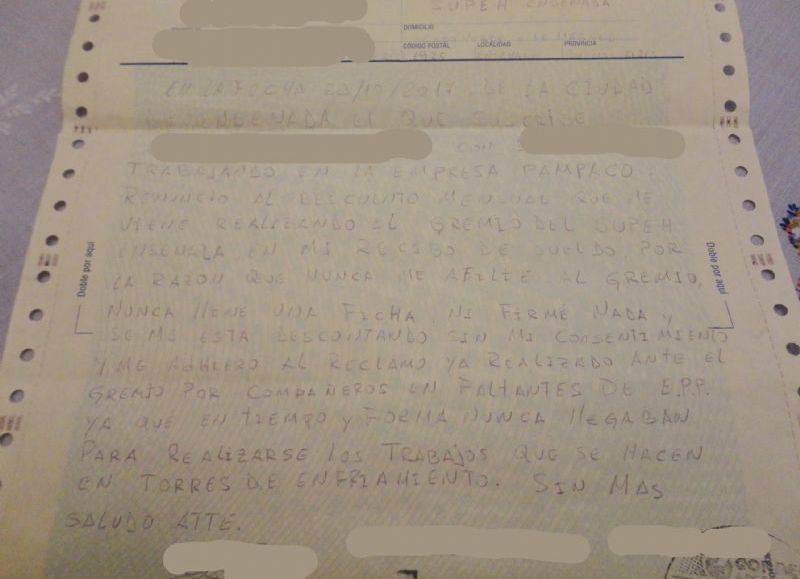 SUPEH ENSENADA
DOMICILIO
CÓDIGO POSTAL LOCALIDAD PROVINCIA
1925
EN LA FECHA 20/10/2017 DE LA CIUDAD
DE ENSENADA EL QUE SUSCRIBE
CON
TRABAJANDO EN LA EMPRESA PAMPACO.
RENUNCIO AL DESCUENTO MENSUAL QUE ME
VIENE REALIZANDO AL GREMIO DEL SUPEH
ENSENADA EN MI RECIBO DE SUELDO POR
LA RAZON QUE NUNCA ME AFILIE AL GREMIO,
NUNCA LLENE UNA FICHA, NI FIRME NADA Y
SE ME ESTA DESCONTANDO SIN MI CONSENTIMIENTO
Y ME ADHIERO AL RECLAMO YA REALIZADO ANTE EL
GREMIO POR COMPAÑEROS EN FALTANTES DE E.P.P.
YA QUE EN TIEMPO Y FORMA NUNCA LLEGABAN
PARA REALIZARSE LOS TRABAJOS QUE SE HACEN
EN TORRES DE ENFRIAMIENTO. SIN MAS
SALUDO ATTE.
Doble por aquí
Doble por aquí